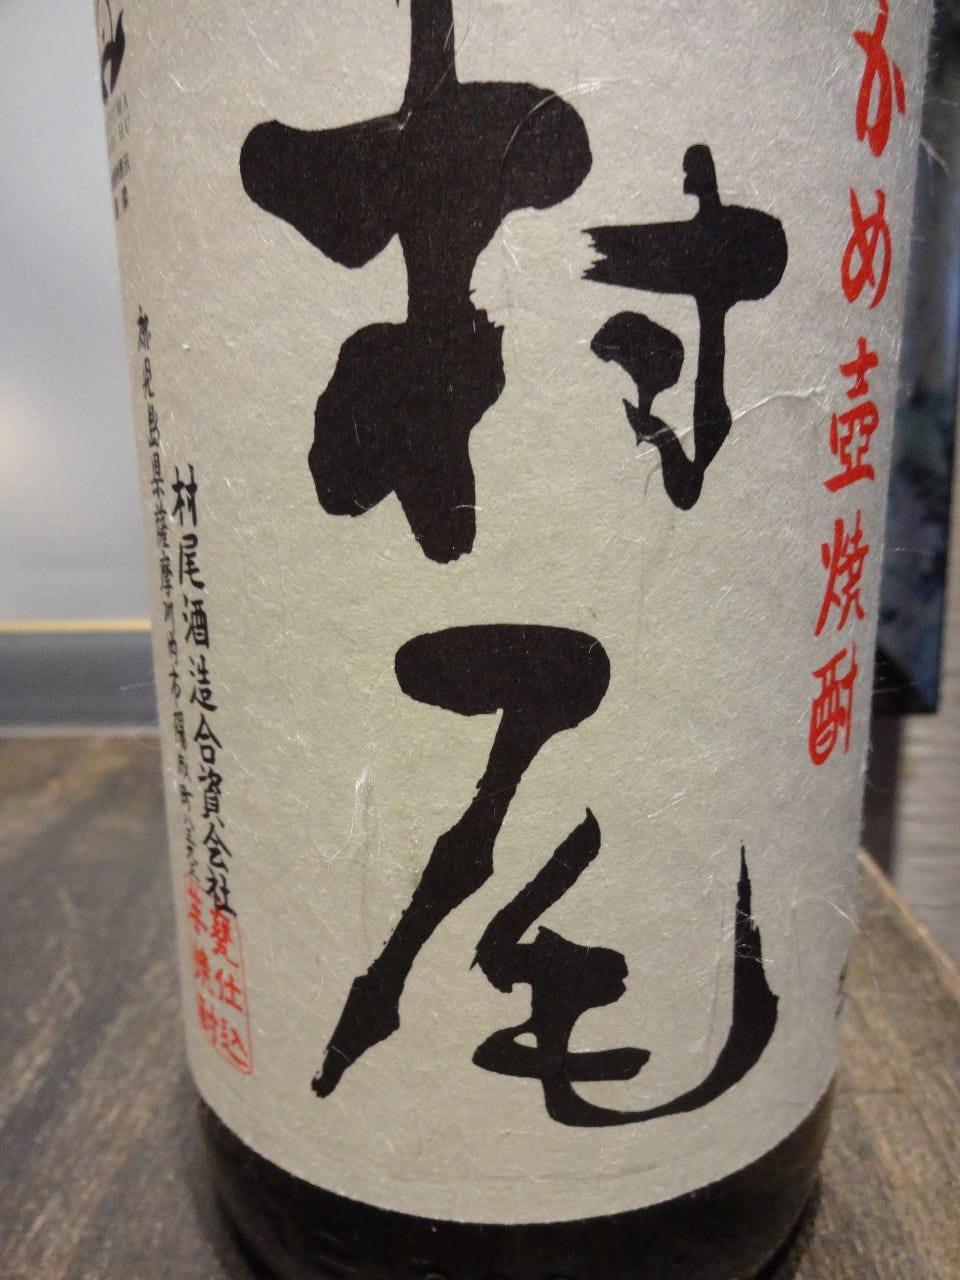 かめ壺焼酎
村尾
村尾酒造合資会社
鹿児島県薩摩川内市陽成町
甕仕込